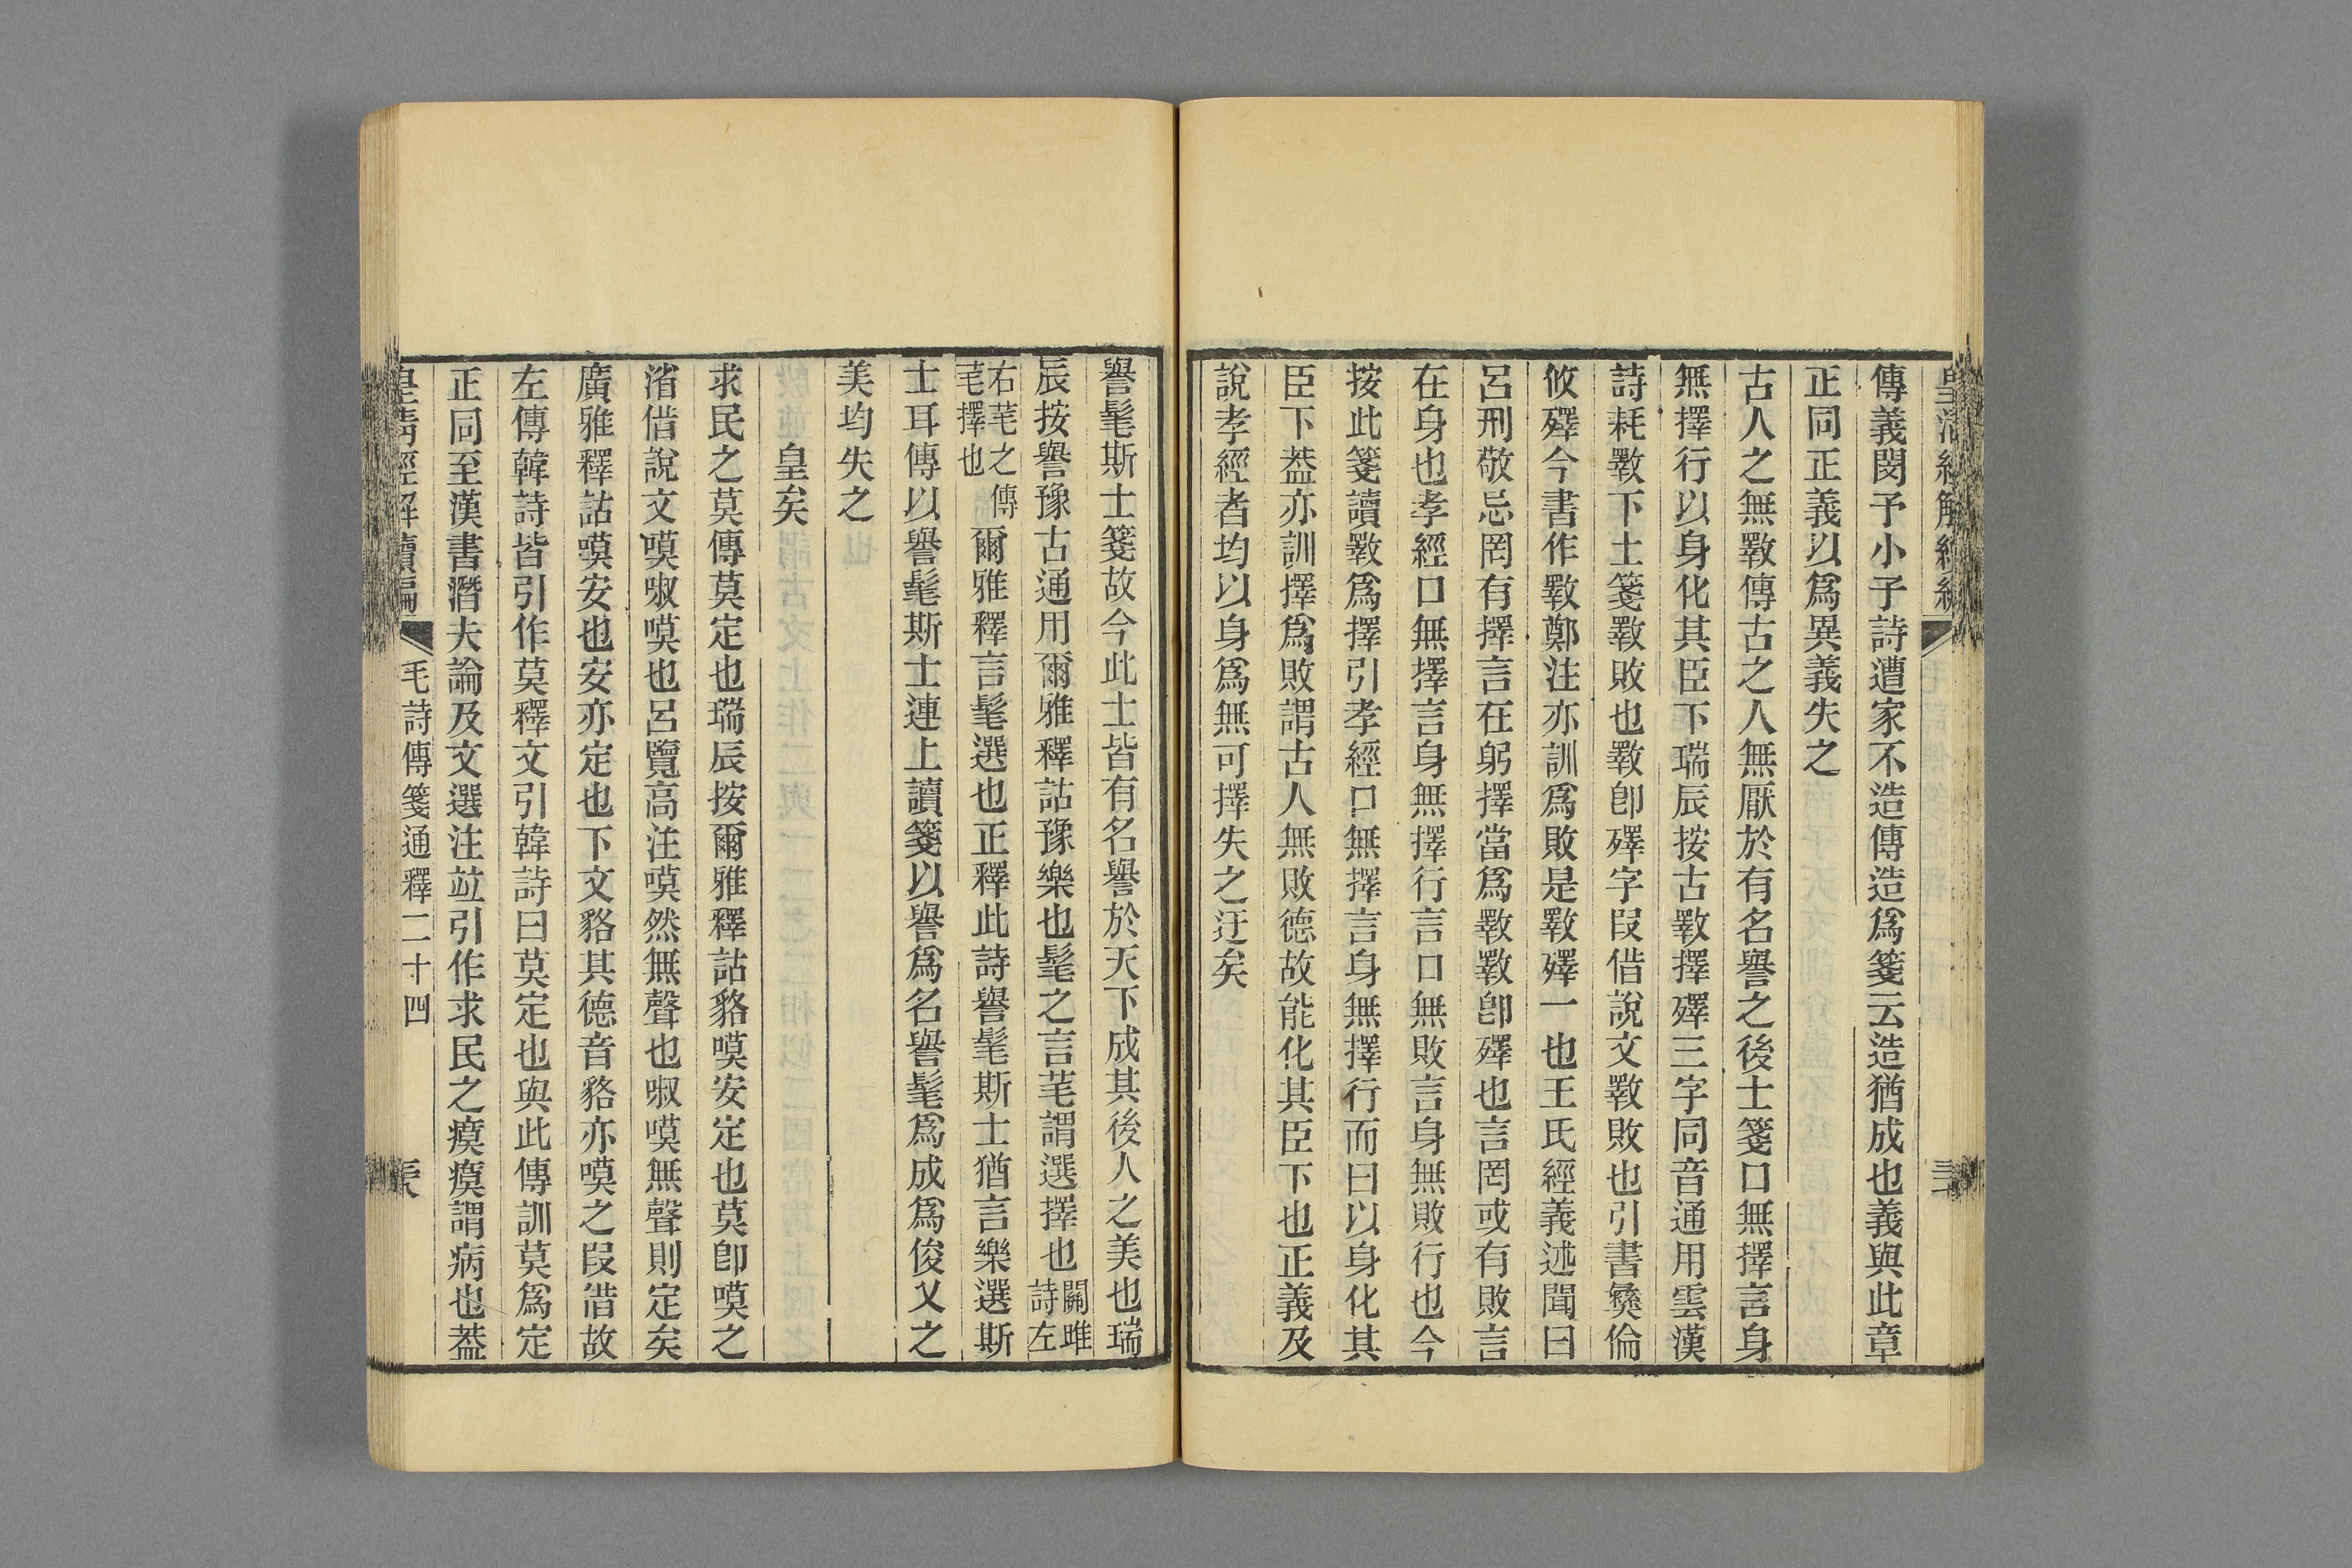 傳義閔予小子詩遭家不造傳造爲箋云造猶成也義與此章
正同正義以爲異義失之
古人之無斁傳古之人無厭於有名譽之後士箋口無擇言身
無擇行以身化其臣下瑞辰按古斁擇殬三字同音通用雲漢
詩耗斁下土箋斁敗也斁卽殬字叚借說文斁敗也引書彝倫
攸殬今書作斁鄭注亦訓爲敗是斁殬一也王氏經義述聞曰
呂刑敬忌罔有擇言在躬擇當爲斁斁卽殬也言罔或有敗言
在身也孝經口無擇言身無擇行言口無敗言身無敗行也今
按此箋讀斁爲擇引孝經口無擇言身無擇行而曰以身化其
臣下葢亦訓擇爲敗謂古人無敗德故能化其臣下也正義及
說孝經者均以身爲無可擇失之迂矣
譽髦斯士箋故今此士皆有名譽於天下成其後人之美也瑞
辰按譽豫古通用爾雅釋詁豫樂也髦之言芼謂選擇也關雎詩左
右芼之傳芼擇也爾雅釋言髦選也正釋此詩譽髦斯士猶言樂選斯
士耳傳以譽髦斯士連上讀箋以譽爲名譽髦爲成爲俊乂之
美均失之
皇矣
求民之莫傳莫定也瑞辰按爾雅釋詁貉嗼安定也莫卽嗼之
渻借說文嗼㖩嗼也呂覽高注嗼然無聲也㖩嗼無聲則定矣
廣雅釋詁嗼安也安亦定也下文貉其德音貉亦嗼之叚借故
左傳韓詩皆引作莫釋文引韓詩曰莫定也與此傳訓莫爲定
正同至漢書潛夫論及文選注竝引作求民之瘼瘼謂病也葢
皇淸經解續編
毛詩傳箋通釋二十四